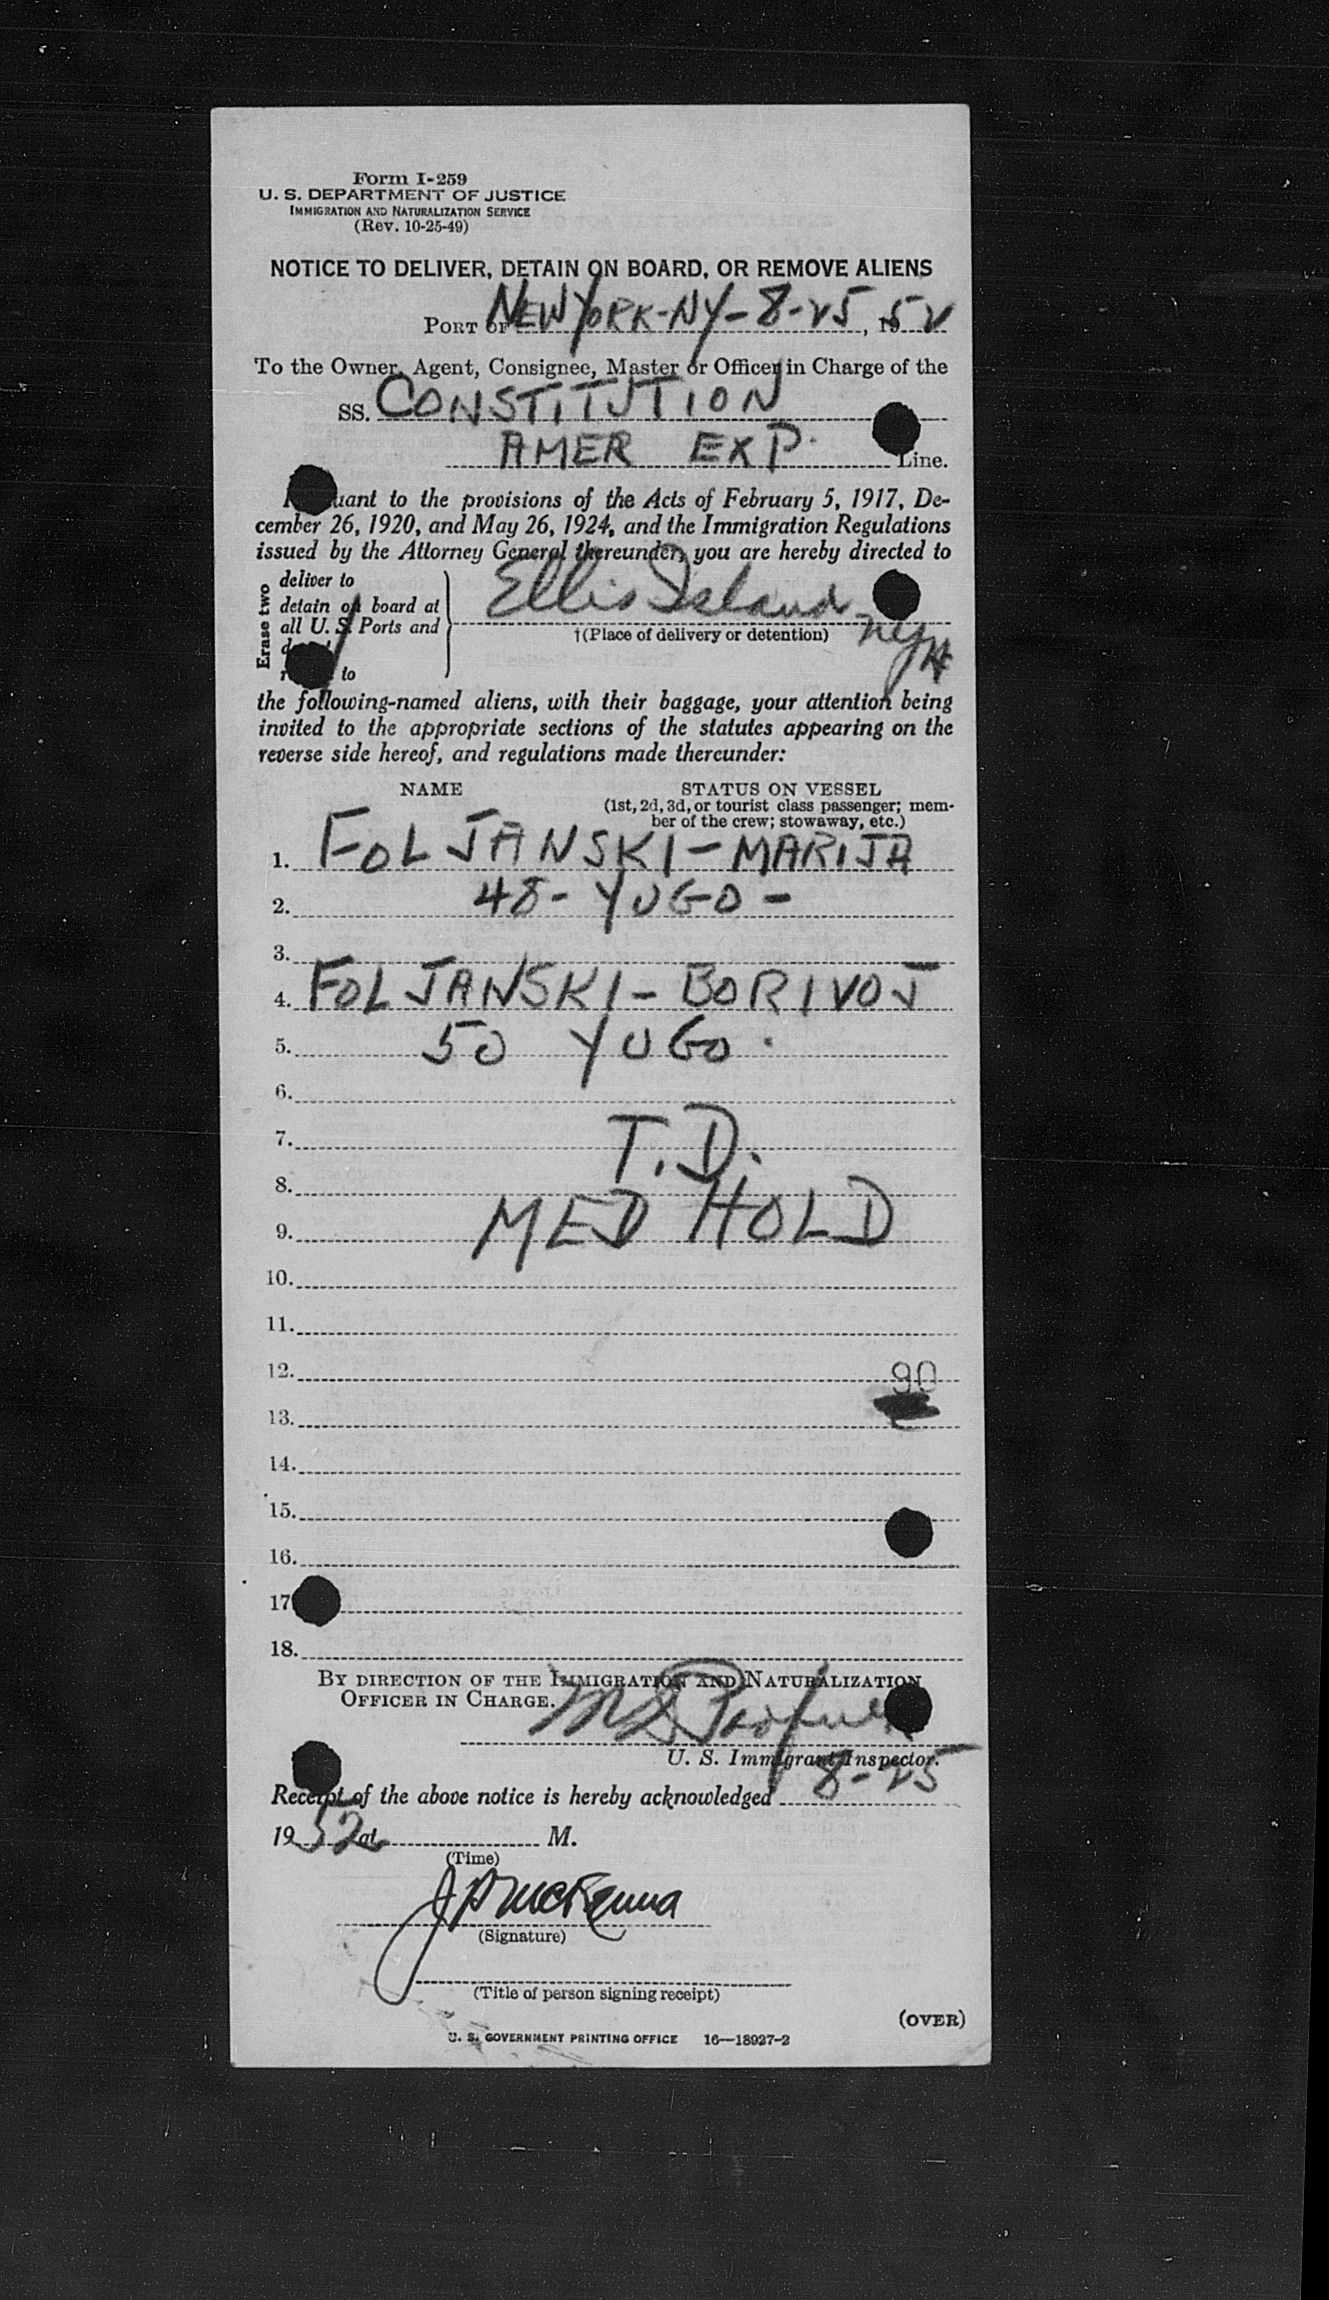 Form I-259
U. S. DEPARTMENT OF JUSTICE
IMMIGRATION AND NATURALIZATION SERVICE
(Rev. 10-25-49)
NOTICE TO DELIVER, DETAIN ON BOARD, OR REMOVE ALIENS
PORT OF NEW YORK-NY-8-25, 1952
To the Owner, Agent, Consignee, Master or Officer in Charge of the
SS. CONSTITUTION
AMER EXP. Line.
to the provisions of the Acts of February 5, 1917, De-
cember 26, 1920, and May 26, 1924, and the Immigration Regulations
issued by the Attorney General thereunder, you are hereby directed to
Erase two
deliver to
detain on board at
all U. S. Ports and
to
Ellis Island NYH
†(Place of delivery or detention)
the following-named aliens, with their baggage, your attention being
invited to the appropriate sections of the statutes appearing on the
reverse side hereof, and regulations made thereunder:
NAME STATUS ON VESSEL
(1st, 2d, 3d, or tourist class passenger; mem-
ber of the crew; stowaway, etc.)
1. FOLJANSKI - MARIJA
2. 48 - YUGO -
3.
4. FOLJANSKI - BORIVOJ
5. 50 YUGO.
6.
7. T.D.
8.
9. MED HOLD
10.
11.
12. 90
13.
14.
15.
16.
17
18.
BY DIRECTION OF THE IMMIGRATION AND NATURALIZATION
OFFICER IN CHARGE.
U. S. Immigrant Inspector.
Receipt of the above notice is hereby acknowledged 8-25
1952 at M.
(Time)
J P McKenna
(Signature)
(Title of person signing receipt)
(OVER)
U. S. GOVERNMENT PRINTING OFFICE 16—18927-2